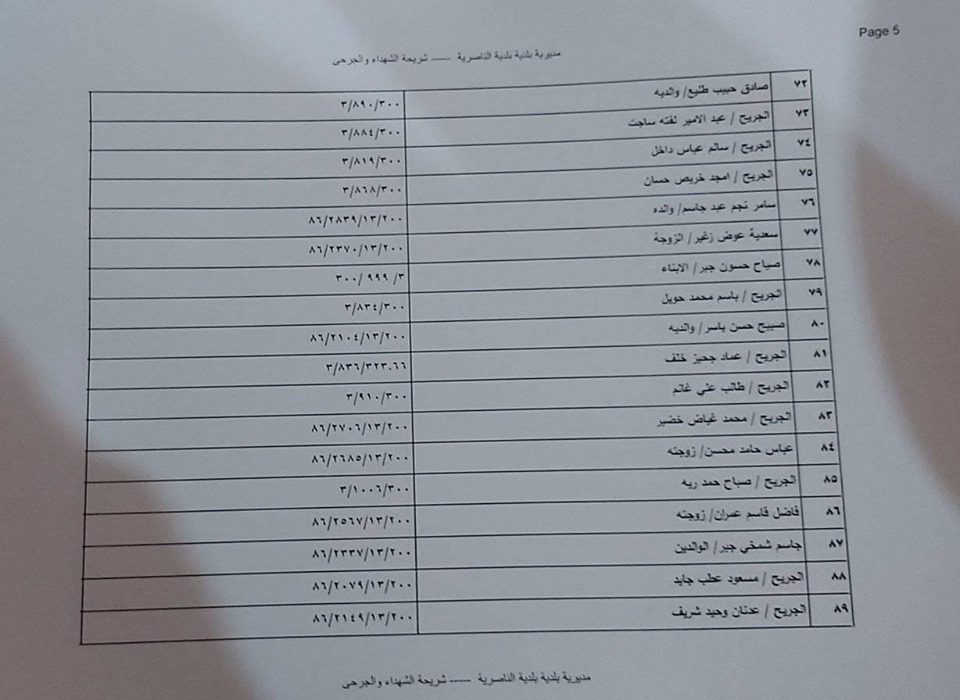 Page 5
مديرية بلدية بلدية الناصرية ---- شريحة الشهداء والجرحى
٧٢ صادق حبيب طليع/ والديه ٣/٨٩٠/٣٠٠
٧٣ الجريح / عبد الامير لفته ساجت ٣/٨٨٤/٣٠٠
٧٤ الجريح / سالم عباس داخل ٣/٨١٩/٣٠٠
٧٥ الجريح / امجد خريص حسان ٣/٨٦٨/٣٠٠
٧٦ سامر نجم عبد جاسم/ والده ٨٦/٢٨٣٩/١٣/٢٠٠
٧٧ سعدية عوض زغير/ الزوجة ٨٦/٢٣٧٠/١٣/٢٠٠
٧٨ صباح حسون جبر/ الابناء ٣/ ٩٩٩ /٣٠٠
٧٩ الجريح / باسم محمد حويل ٣/٨٣٤/٣٠٠
٨٠ صبيح حسن ياسر/ والديه ٨٦/٢١٠٤/١٣/٢٠٠
٨١ الجريح / عماد جحيز خلف ٣/٨٣٦/٣٢٣.٦٦
٨٢ الجريح / طالب علي غانم ٣/٩١٠/٣٠٠
٨٣ الجريح / محمد غياض خضير ٨٦/٢٧٠٦/١٣/٢٠٠
٨٤ عباس حامد محسن/ زوجته ٨٦/٢٦٨٥/١٣/٢٠٠
٨٥ الجريح / صباح حمد ريه ٣/١٠٠٦/٣٠٠
٨٦ فاضل قاسم عمران/ زوجته ٨٦/٢٥٦٧/١٣/٢٠٠
٨٧ جاسم شمخي جبر/ الوالدين ٨٦/٢٣٣٧/١٣/٢٠٠
٨٨ الجريح / مسعود عطب جايد ٨٦/٢٠٧٩/١٣/٢٠٠
٨٩ الجريح / عدنان وحيد شريف ٨٦/٢١٤٩/١٣/٢٠٠
مديرية بلدية بلدية الناصرية ---- شريحة الشهداء والجرحى